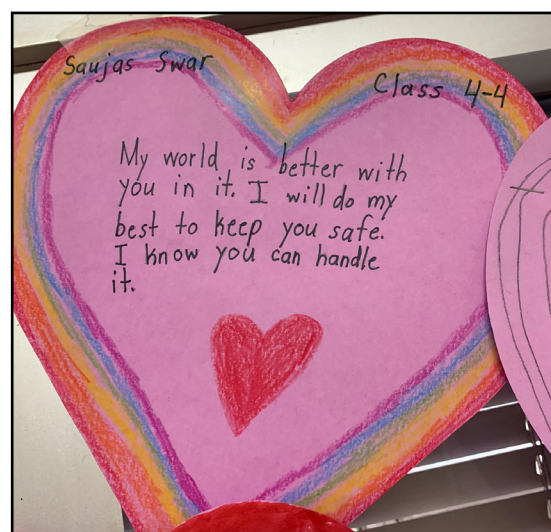 Saujas Swar
Class 4-4
My world is better with
you in it. I will do my
best to keep you safe.
I know you can handle
it.